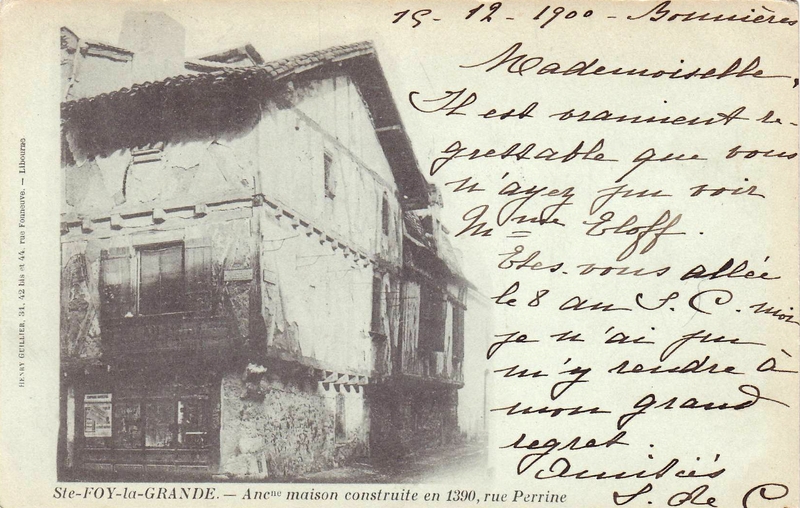 15 - 12 - 1900 - Bonnières
Mademoiselle,
Il est vraiment re-
grettable que vous
n'ayez pu voir
Mme Eloff.
Êtes-vous allée
le 8 au S. C. moi
je n'ai pu
m'y rendre à
mon grand
regret.
Amitiés
S. de C.
HENRY GUILLIER, 31, 42 bis et 44, rue Fonneuve. — Libourne
Ste-FOY-la-GRANDE. — Ancne maison construite en 1390, rue Perrine